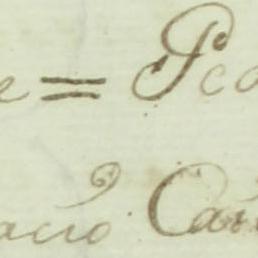 e = Pco
acio Car